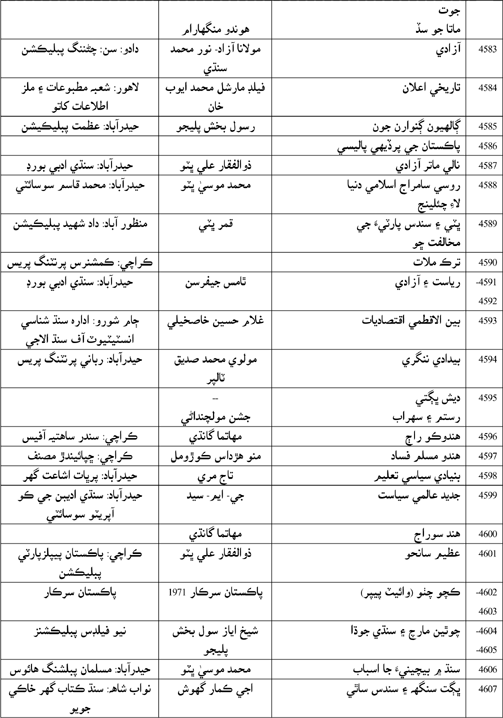 جوت
ماتا جو سڏ	هوندو منگهارام
4583	آزادي	مولانا آزاد- نور محمد سنڌي	دادو: سن: چڻنگ پبليڪشن
4584	تاريخي اعلان	فيلڊ مارشل محمد ايوب خان	لاهور: شعبہ مطبوعات ۽ ملز اطلاعات کاتو
4585	ڳالهيون ڳنوارن جون	رسول بخش پليجو	حيدرآباد: عظمت پبليڪيشن
4586	پاڪستان جي پرڏيهي پاليسي
4587	نالي ماتر آزادي	ذوالفقار علي ڀٽو	حيدرآباد: سنڌي ادبي بورڊ
4588	روسي سامراج اسلامي دنيا لاءِ چئلينج	محمد موسيٰ ڀٽو	حيدرآباد: محمد قاسم سوسائٽي
4589	ڀٽي ۽ سندس پارٽيءَ جي مخالفت ڇو	قمر ڀٽي	منظور آباد: داد شهيد پبليڪيشن
4590	ترڪ ملات	ڪراچي: ڪمشنرس پرنٽنگ پريس
4591-
4592	رياست ۽ آزادي	ٿامس جيفرسن	حيدرآباد: سنڌي ادبي بورڊ
4593	بين الاقطمي اقتصاديات	غلام حسين خاصخيلي	ڄام شورو: اداره سنڌ شناسي انسٽيٽيوٽ آف سنڌ الاجي
4594	بيدادي ننگري	مولوي محمد صديق ٽالپر	حيدرآباد: رباني پرنٽنگ پريس
4595	ديش ڀڳتي	--
رستم ۽ سهراب	جشن مولچنداڻي
4596	هندوڪو راڄ	مهاتما گانڌي	ڪراچي: سندر ساهتيہ آفيس
4597	هندو مسلم فساد	منو هڙداس ڪوڙومل	ڪراچي: ڇپائيندڙ مصنف
4598	بنيادي سياسي تعليم	تاج مري	حيدرآباد: پرڀات اشاعت گهر
4599	جديد عالمي سياست	جي- ايم- سيد	حيدرآباد: سنڌي اديبن جي ڪو آپريٽو سوسائٽي
4600	هند سوراج	مهاتما گانڌي
4601	عظيم سانحو	ذوالفقار علي ڀٽو	ڪراچي: پاڪستان پيپلزپارٽي پبليڪيشن
4602-
4603	ڪچو چٺو (وائيٽ پيپر)	پاڪستان سرڪار 1971	پاڪستان سرڪار
4604-
4605-	چوٿين مارچ ۽ سنڌي جوڌا	شيخ اياز سول بخش پليجو	نيو فيلڊس پبليڪشنز
4606	سنڌ ۾ بيچينيءَ جا اسباب	محمد موسيٰ ڀٽو	حيدرآباد: مسلمان پبلشنگ هائوس
4607	ڀڳت سنگهہ ۽ سندس ساٿي	اجي ڪمار گهوش	نواب شاهہ: سنڌ ڪتاب گهر خاڪي جويو